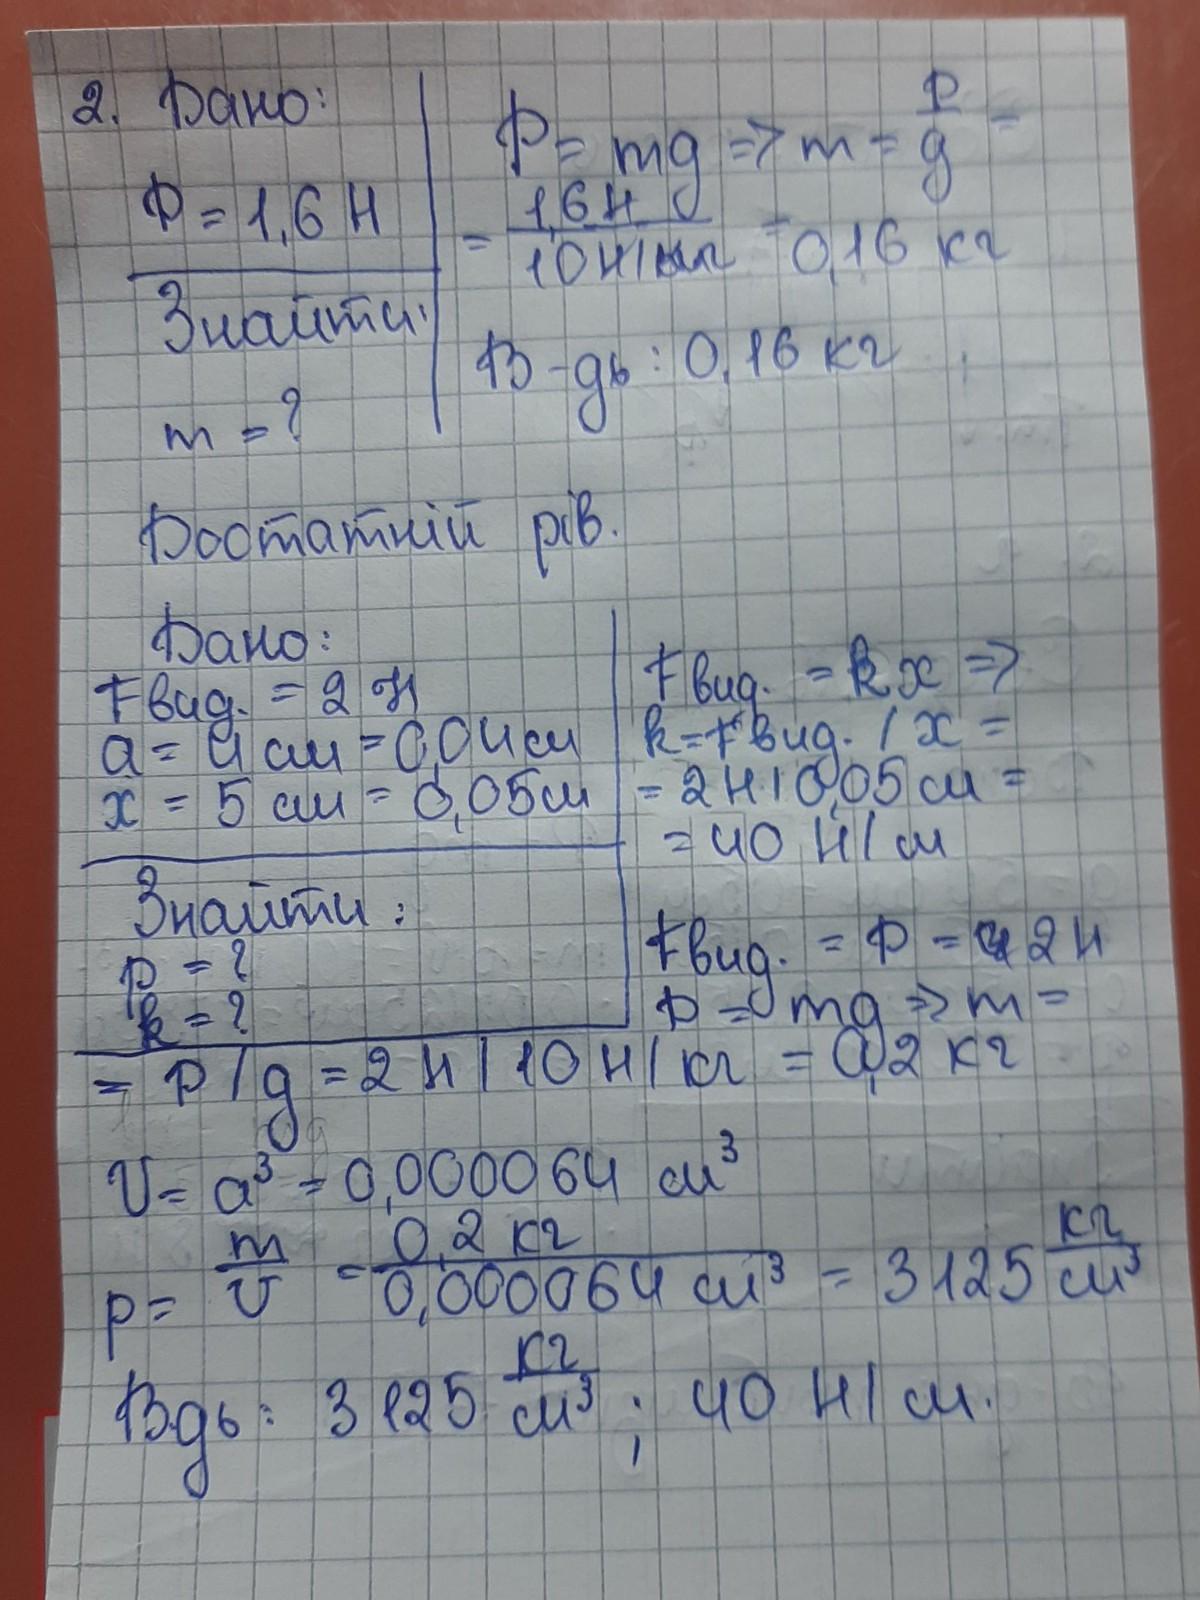 2. Дано:
P = 1,6 Н
Знайти:
m = ?
P = mg => m = P/g =
= 1,6 Н / 10 Н/кг = 0,16 кг
В-дь: 0,16 кг
Достатній рів.
Дано:
Fвид. = 2 Н
a = 4 см = 0,04 м
x = 5 см = 0,05 м
Знайти:
p = ?
k = ?
Fвид. = kx =>
k = Fвид. / x =
= 2 Н / 0,05 м =
= 40 Н/м
Fвид. = P = 2 Н
P = mg => m =
= P/g = 2 Н / 10 Н/кг = 0,2 кг
V = a³ = 0,000064 м³
p = m/V = 0,2 кг / 0,000064 м³ = 3125 кг/м³
Вдь: 3125 кг/м³ ; 40 Н/м.